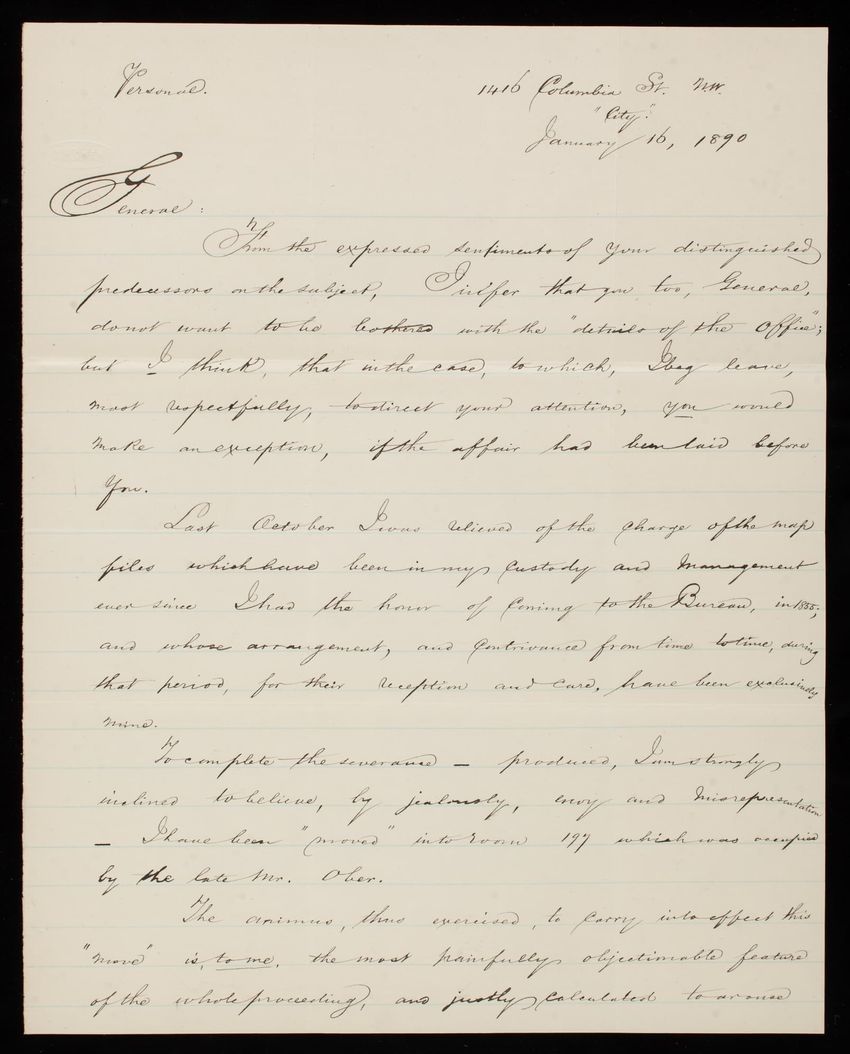 Personal.
1416 Columbia St. N.W.
"City."
January 16, 1890
General:
From the expressed sentiments of your distinguished
predecessors on the subject, I infer that you too, General,
do not want to be bothered with the "details of the Office";
but I think, that in the case, to which, I beg leave,
most respectfully, to direct your attention, you would
make an exception, if the affair had been laid before
you.
Last October I was relieved of the charge of the map
files which have been in my custody and management
ever since I had the honor of coming to the Bureau, in 1855;
and whose arrangement, and contrivance from time to time, during
that period, for their reception and care, have been exclusively
mine.
To complete the severance — produced, I am strongly
inclined to believe, by jealousy, envy and misrepresentation
— I have been "moved" into room 197 which was occupied
by the late Mr. Ober.
The animus, thus exercised, to carry into effect this
"move" is, to me, the most painfully objectionable feature
of the whole proceeding, and justly calculated to arouse